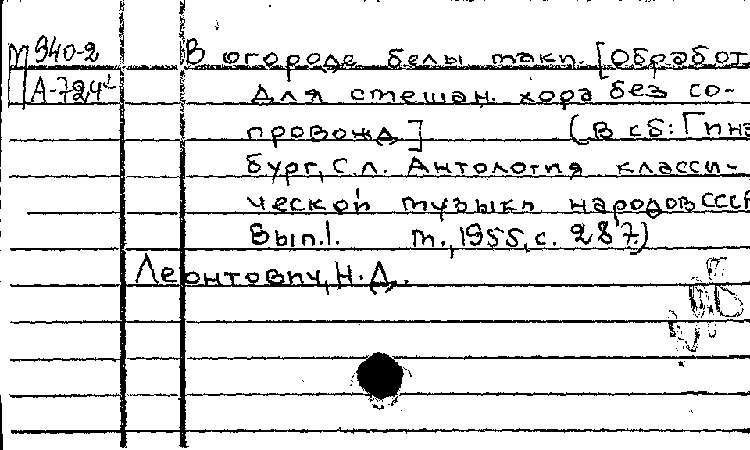 М 940-2
А-724²
В огороде белы маки. [Обработ
для смешан. хора без со-
провожд]       (В сб: Гинз
бург, С.Л. Антология класси-
ческой музыки народов СССР
Вып.1.   М., 1955, с. 287.)
Леонтович, Н.Д.